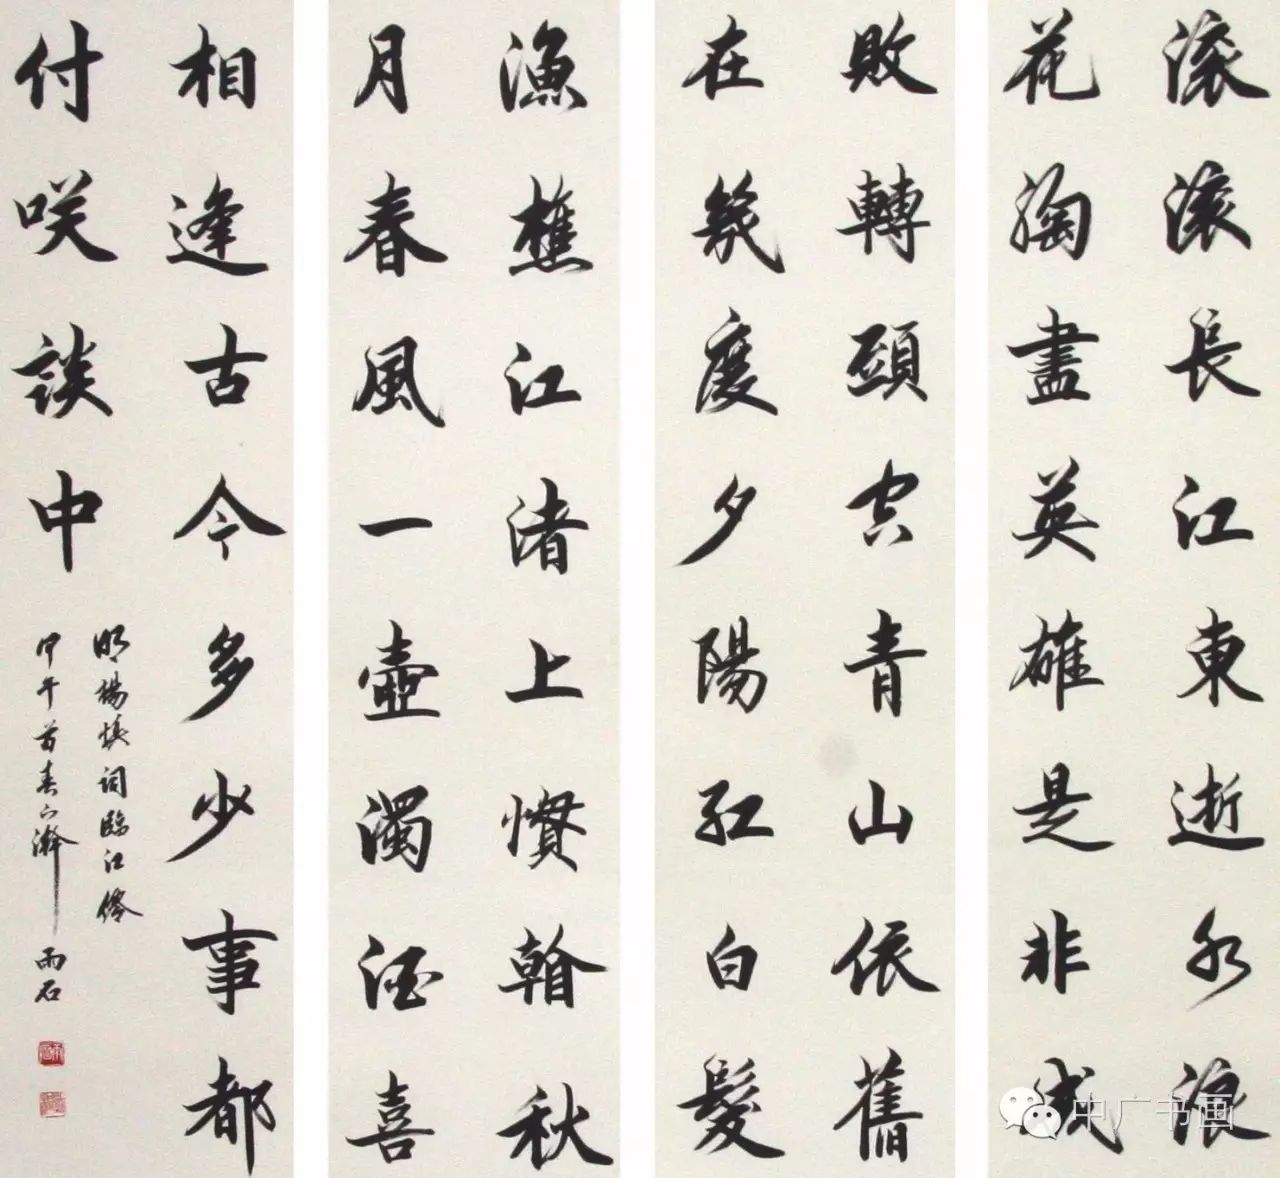 滚滚長江東逝水浪
花淘盡英雄是非成
敗轉頭空青山依舊
在幾度夕陽紅白髮
漁樵江渚上慣看秋
月春風一壺濁酒喜
相逢古今多少事都
付咲談中
明楊慎詞臨江僊
甲午首春下澣 雨石
中广书画